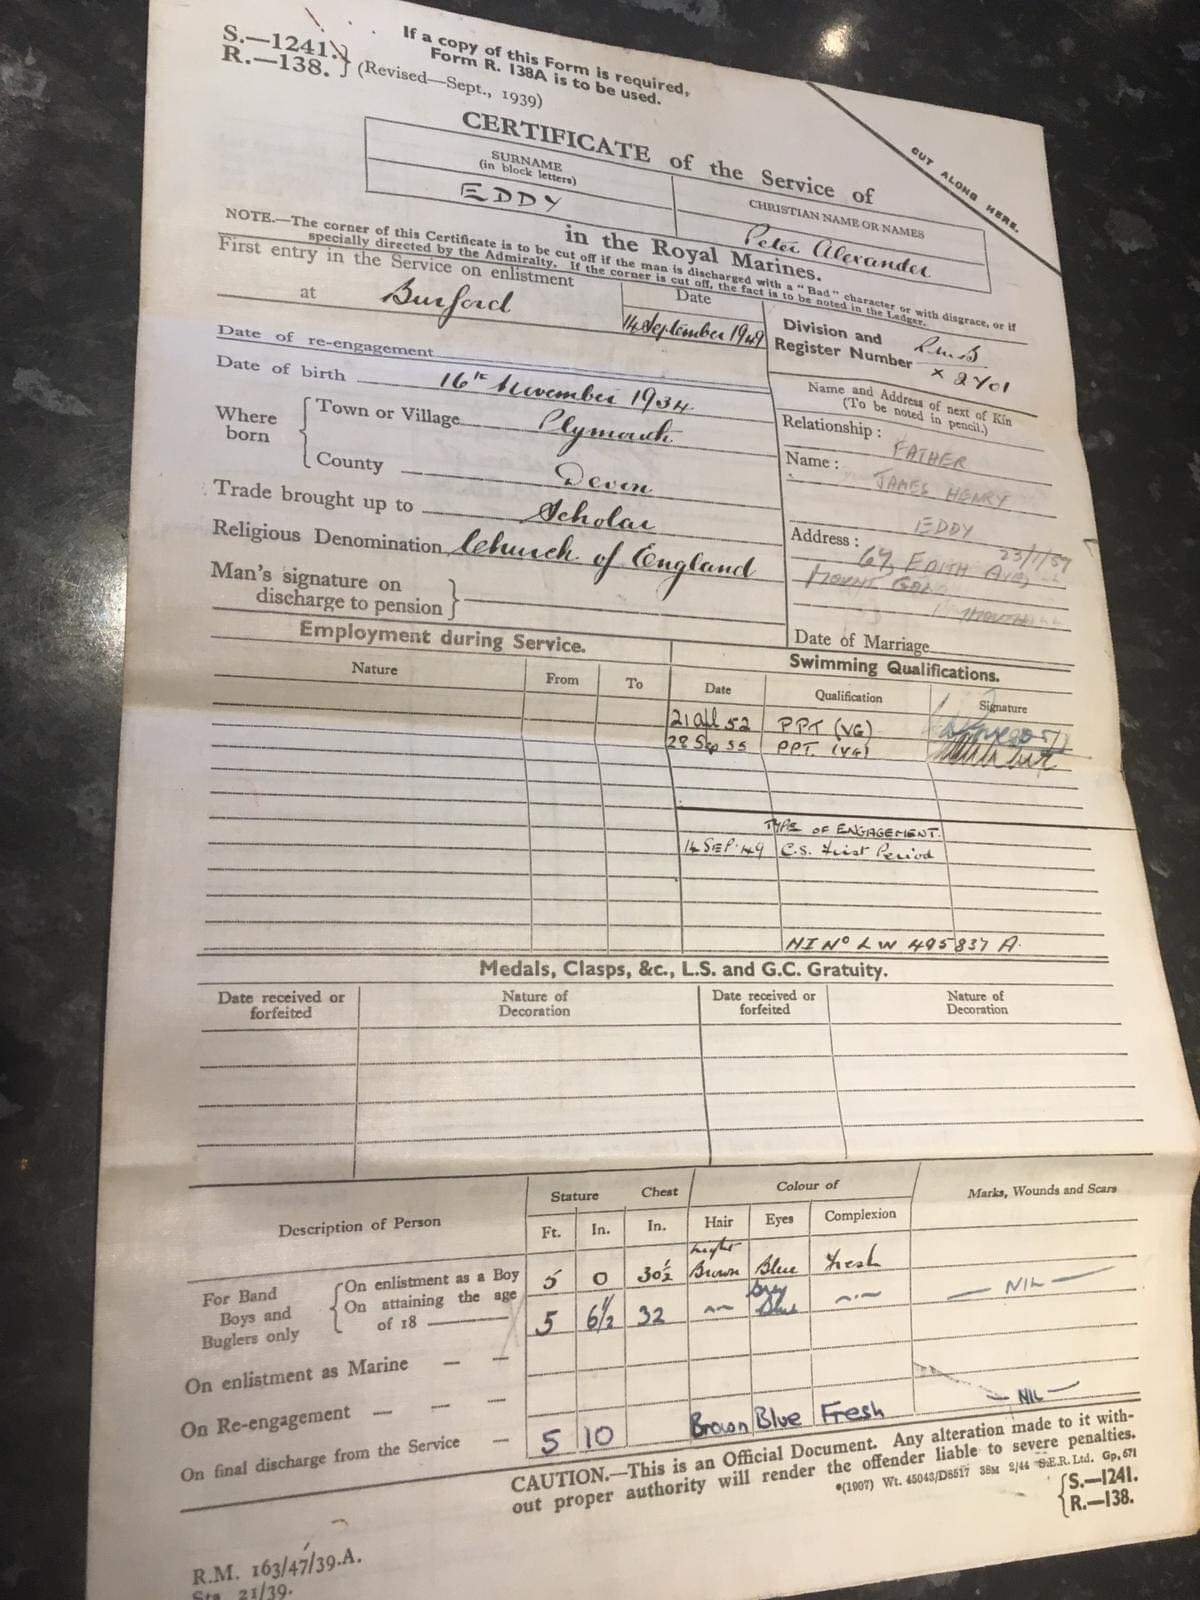 S.—1241.
R.—138. } (Revised—Sept., 1939)
If a copy of this Form is required,
Form R. 138A is to be used.
CUT ALONG HERE.
CERTIFICATE of the Service of
SURNAME
(in block letters)
CHRISTIAN NAME OR NAMES
EDDY
Peter Alexander
in the Royal Marines.
NOTE.—The corner of this Certificate is to be cut off if the man is discharged with a "Bad" character or with disgrace, or if
specially directed by the Admiralty. If the corner is cut off, the fact is to be noted in the Ledger.
First entry in the Service on enlistment
at Burford
Date
14 September 1949
Division and
Register Number
R.M.B
X 2701
Date of re-engagement
Date of birth 16th November 1934.
Where born { Town or Village Plymouth
County Devon
Trade brought up to Scholar
Religious Denomination Church of England
Man's signature on
discharge to pension }
Name and Address of next of Kin
(To be noted in pencil.)
Relationship : FATHER
Name : JAMES HENRY
EDDY
Address : 23/1/59
67, EDITH AVE,
MOUNT GOLD
Date of Marriage
Employment during Service.
Nature From To
Swimming Qualifications.
Date Qualification Signature
21 Apl 52 PPT (VG)
28 Sep 55 PPT. (VG)
TYPE OF ENGAGEMENT.
14 SEP. 49 C.S. First Period
NI No LW 495837 A.
Medals, Clasps, &c., L.S. and G.C. Gratuity.
Date received or forfeited Nature of Decoration Date received or forfeited Nature of Decoration
Description of Person Stature Chest Colour of Marks, Wounds and Scars
Ft. In. In. Hair Eyes Complexion
For Band Boys and Buglers only { On enlistment as a Boy 5 0 30½ Light Brown Blue Fresh
On attaining the age of 18 5 6½ 32 Grey Blue — NIL —
On enlistment as Marine — —
On Re-engagement — — —
On final discharge from the Service — 5 10 Brown Blue Fresh — NIL —
CAUTION.—This is an Official Document. Any alteration made to it with-
out proper authority will render the offender liable to severe penalties.
*(1907) Wt. 45043/D8517 38M 2/44 S.E.R. Ltd. Gp. 671
{ S.—1241.
R.—138.
R.M. 163/47/39.A.
Sta. 21/39.